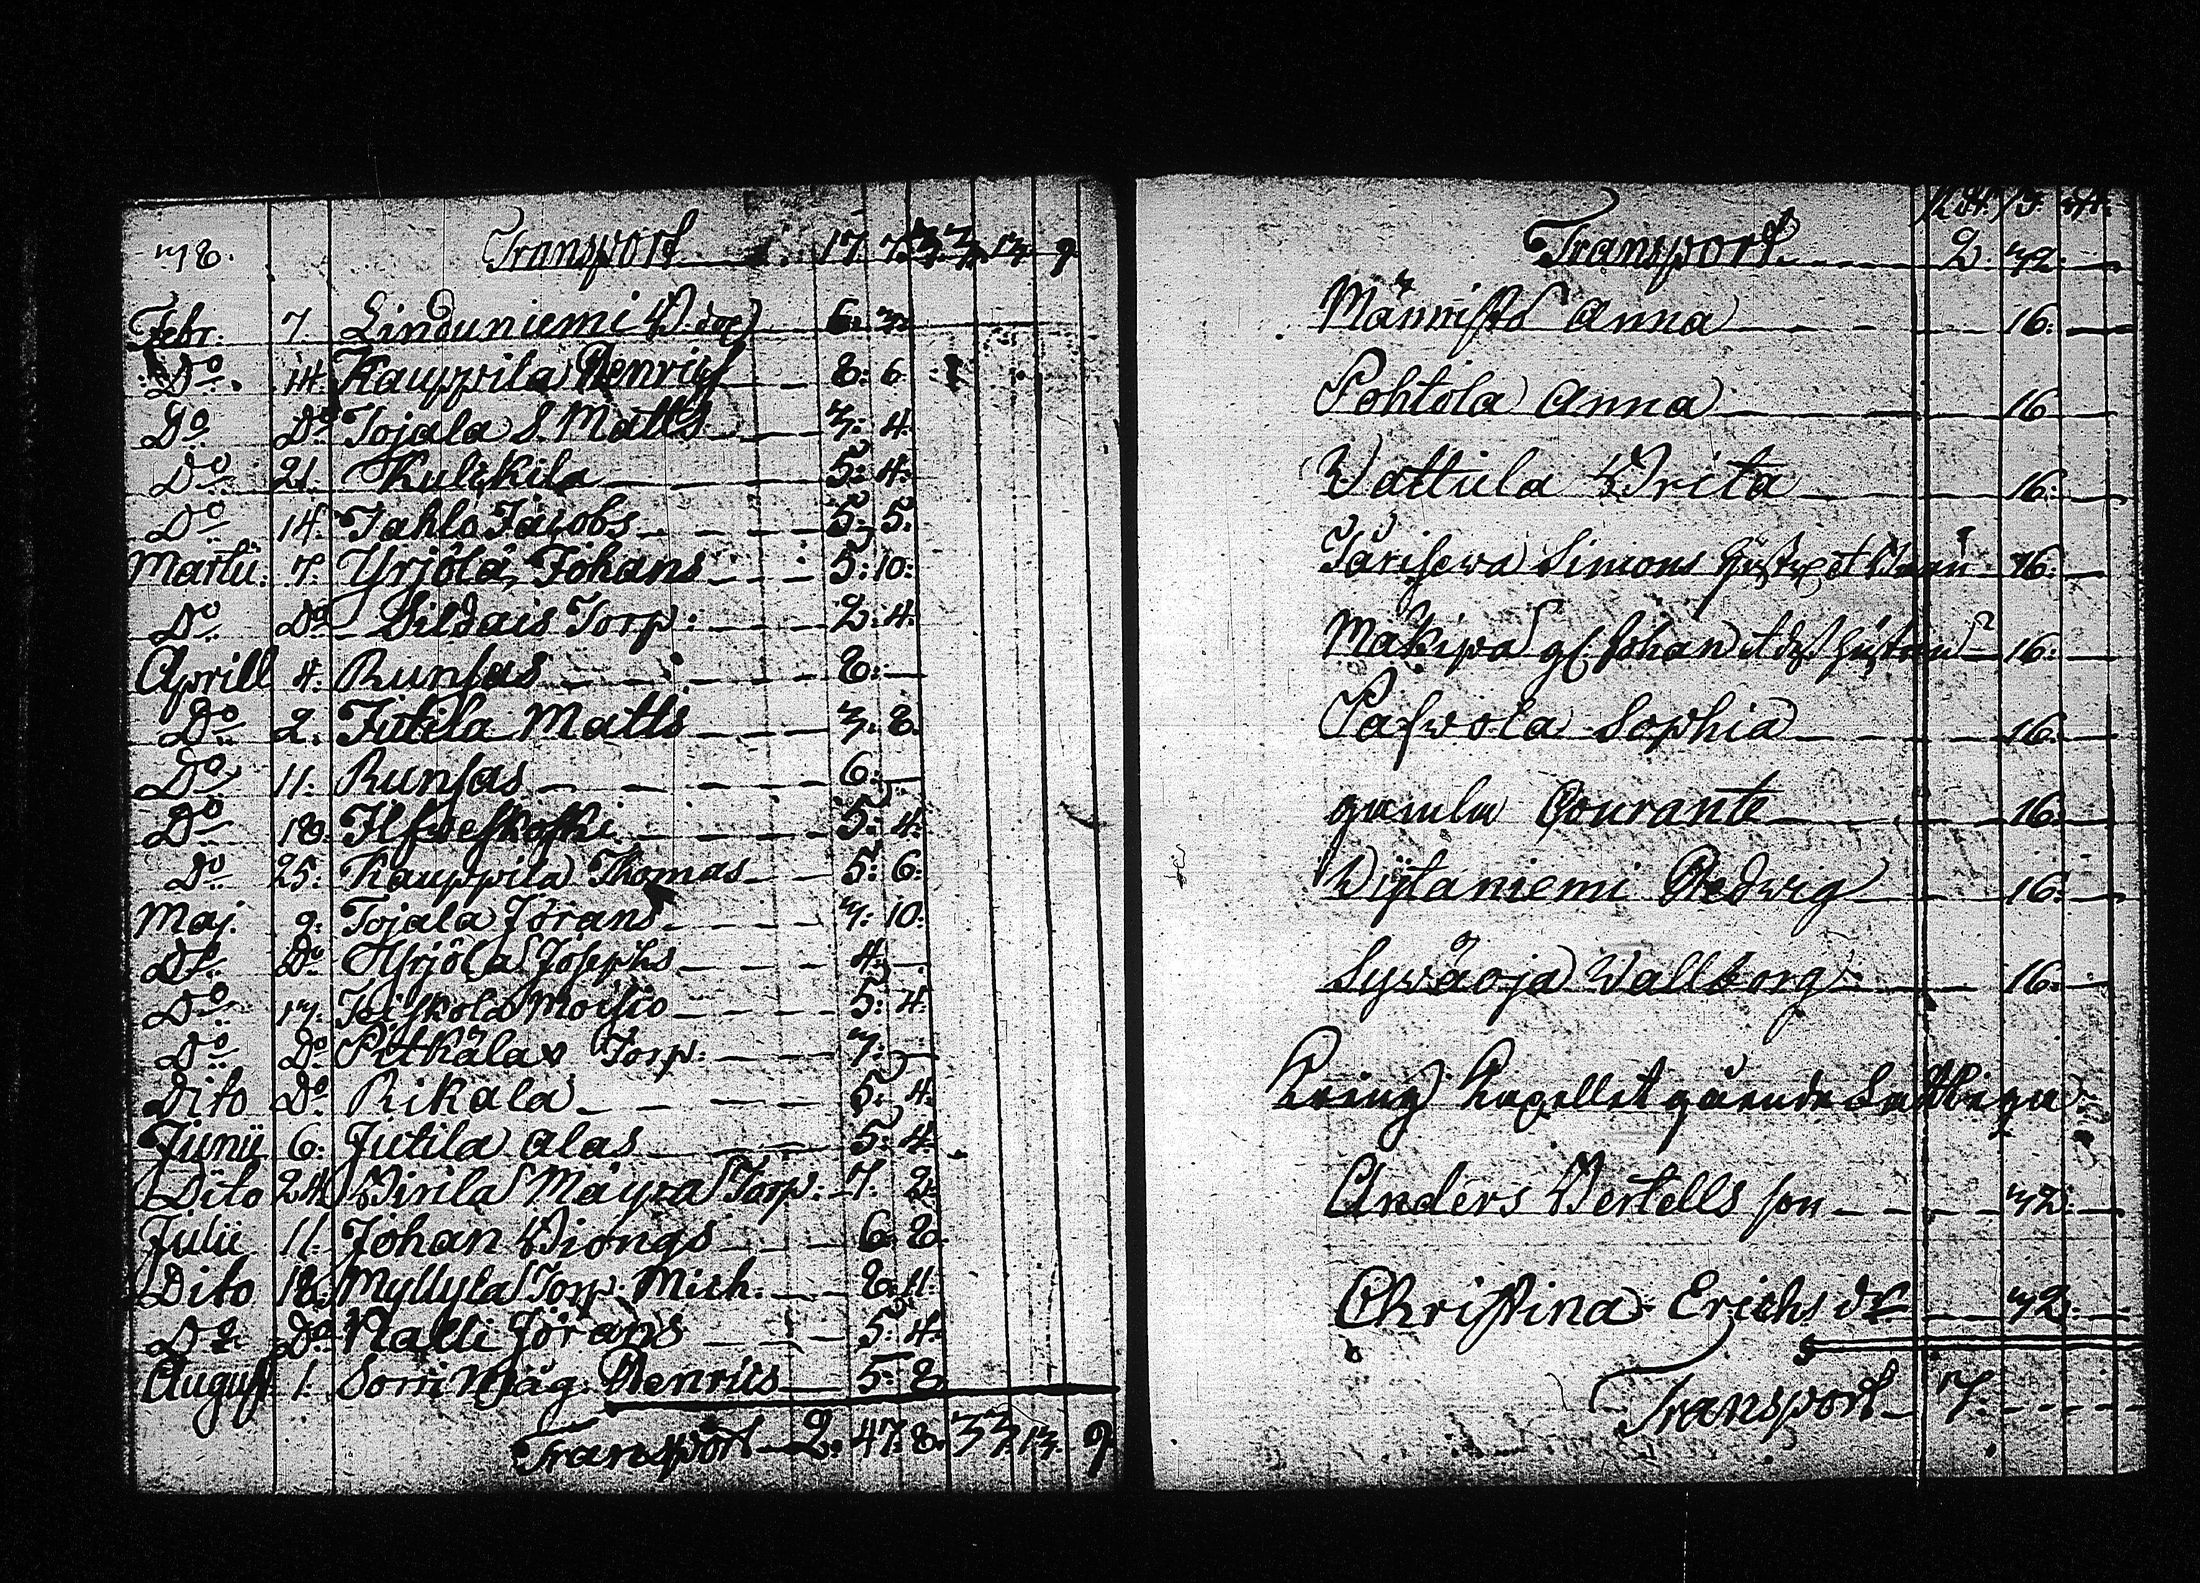 Transport 17. 7. 33. 13. 9
Febr. 7. Linduniemi 6: 3:
Do 14. Kauppila Henrich 8: 6
Do Do Tojala S. Matts 3: 4.
Do 21. Kulckila 5: 4:
Do 14. Tahlo Jacobs 5: 5.
Martii. 7. Yrjölä Johans 5: 10:
Do Do Sildais Torp: 2: 4.
Aprill 4. Runsas 8: —
Do 2. Jutila Matts 3: 8.
Do 11. Runsas 6: —
Do 18. Ilfweskoski 5: 4.
Do 25. Kauppila Thomas 5: 6:
Maj. 9. Tojala Jörans 3: 10:
Do Do Yrjölä Josephs 4: —
Do 13. Teiskola Moisio 5: 4.
Do Do Pitkälax Torp: 7: —
Dito Do Rikala 5: 4.
Junii 6: Jutila alas 5: 4.
Dito 24 Wirila Mäyra Torp. 7. 2.
Julii 11. Johan Biongs 6: 8.
Dito 18. Myllyla Torp. Mich. 8: 11.
Do Do Nalli Jörans 5: 4.
August 1. Sorri Mäg. Henrics 5: 8.
Transport 2. 47. 8. 33 13. 9
Transport 2. 32. —
Männistö Anna 16. —
Pohtola Anna 16 —
Wattula Brita 16. —
Järisewa Simons 16. —
Mäkipä gl. Johan 16. —
Pafwola Sophia 16. —
gamla Courante 16. —
Wijtaniemi Hedwig 16. —
Sywäoja Wallborg 16. —
kring Kapellet gående fattiga
Anders Bertells son 32. —
Christina Erichs dr 32. —
Transport 7. — —